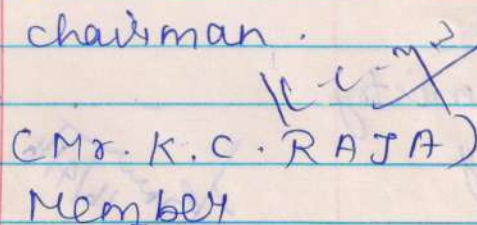 chairman.
(Mr. K. C. RAJA)
Member